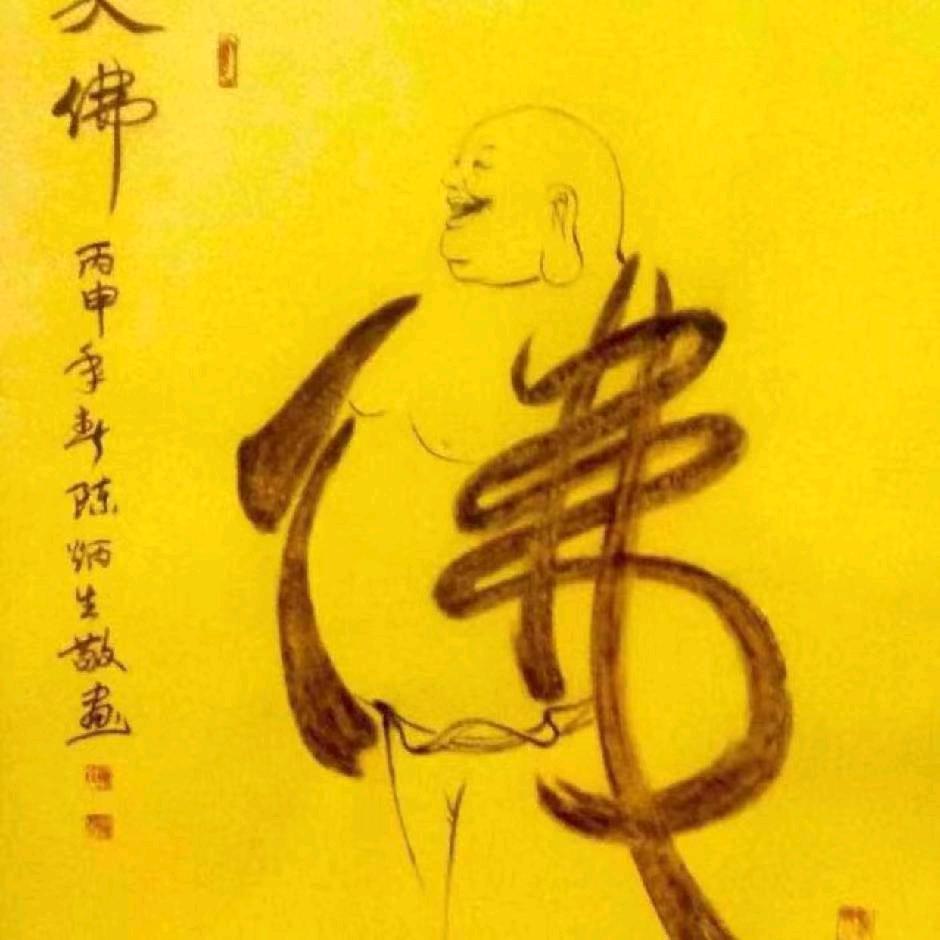 佛
丙申年 陈炳生敬画
佛